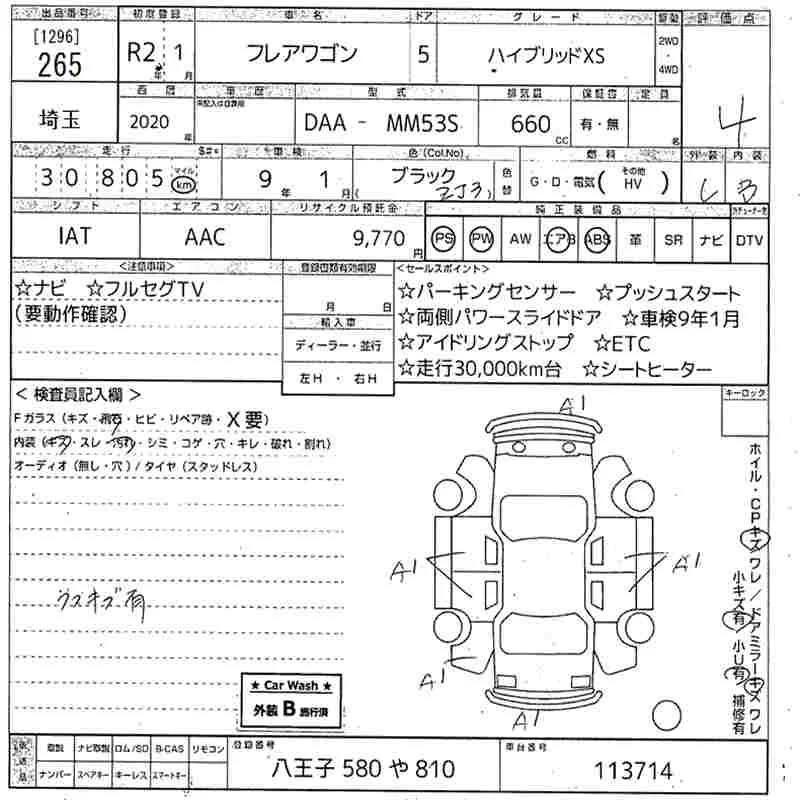 出品番号 初度登録 車名 ドア グレード 駆動 評価点
[1296]
265 R2年 1月 フレアワゴン 5 ハイブリッドXS 2WD・4WD 4
西暦 車歴 型式 排気量 保証書 定員
未記入は自家用
埼玉 2020年 DAA - MM53S 660cc 有・無 名
走行 車検 色(Col.No) 燃料 外装 内装
30805 マイル km 9年 1月 ブラック(ZJ3) 色替 G・D・電気(その他 HV) C B
シフト エアコン リサイクル預託金 純正装備品
IAT AAC 9,770円 PS PW AW エアB ABS 革 SR ナビ DTV
<注意事項>
☆ナビ ☆フルセグTV
(要動作確認)
登録書類有効期限
月 日
輸入車
ディーラー・並行
左H・右H
<セールスポイント>
☆パーキングセンサー ☆プッシュスタート
☆両側パワースライドドア ☆車検9年1月
☆アイドリングストップ ☆ETC
☆走行30,000km台 ☆シートヒーター
<検査員記入欄>
Fガラス(キズ・飛石・ヒビ・リペア跡・X要)
内装(キズ・スレ・汚れ・シミ・コゲ・穴・キレ・破れ・割れ)
オーディオ(無し・穴)/タイヤ(スタッドレス)
ウスキズ有
キーロック
A1
A1
A1
A1
A1
ホイル・CPキズワレ/ドアミラーキズワレ
小キズ有/小U有 補修有
★ Car Wash ★
外装 B 施行済
後送品 取説 ナビ取説 ロム/SD B-CAS リモコン
ナンバー スペアキー キーレス スマートキー
登録番号
八王子 580 や 810
車台番号
113714